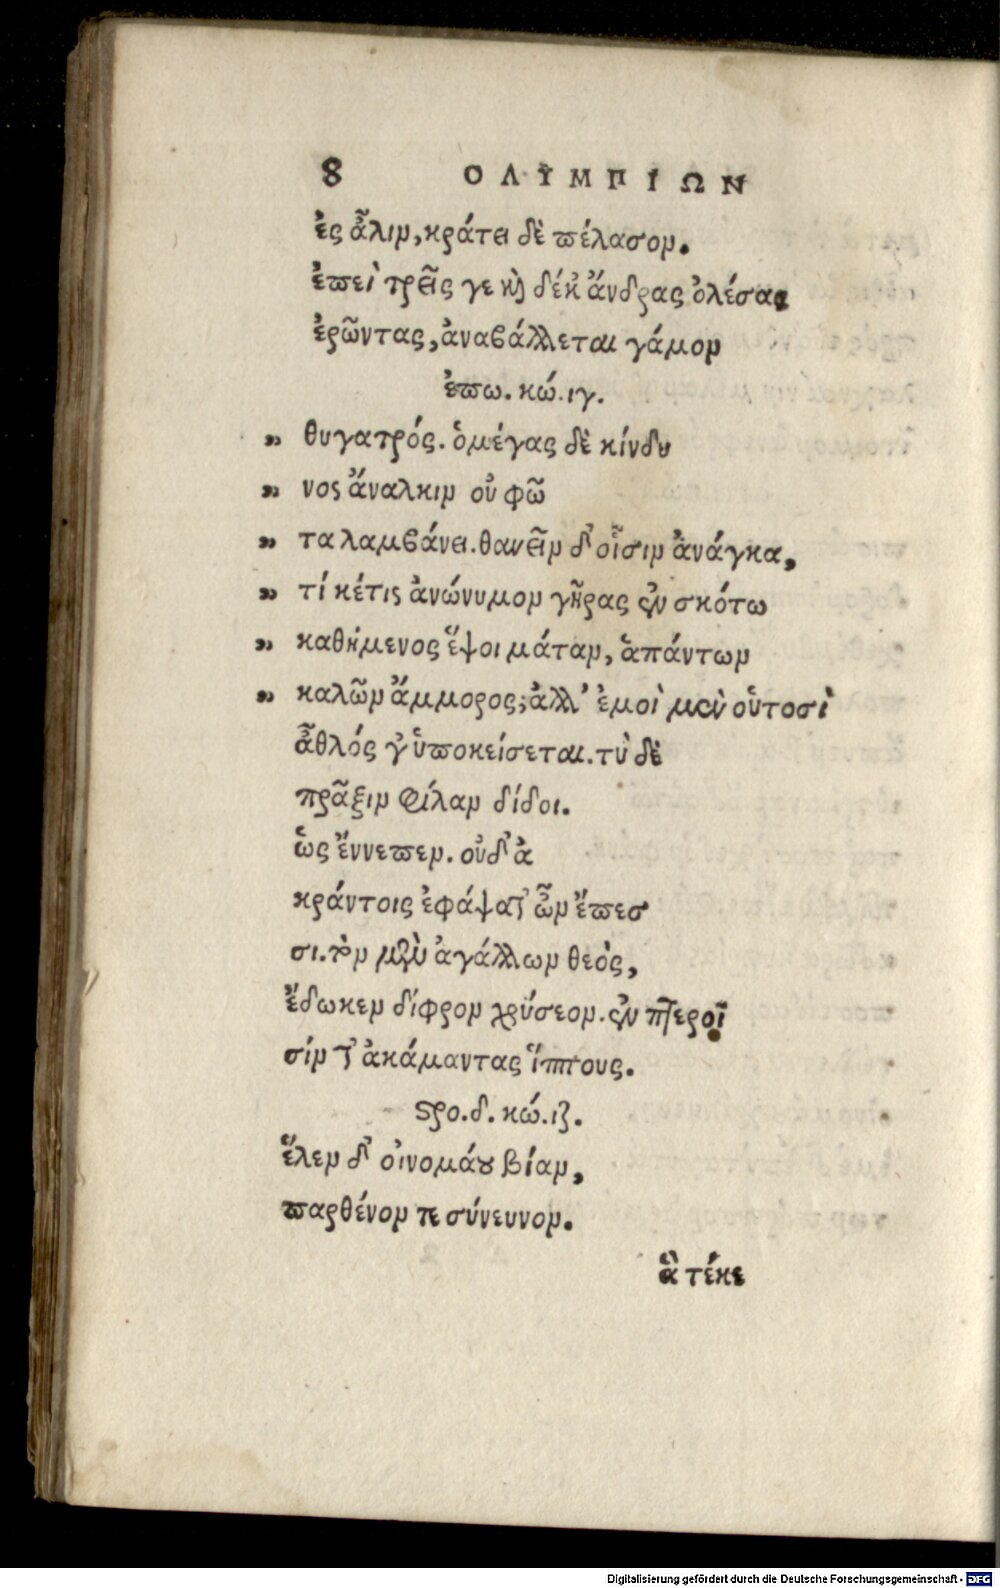 8 ΟΛΥΜΠΙΩΝ
ἐς ἆλιν, κράτει δὲ πέλασον.
ἐπεὶ τρεῖς γε καὶ δέκ' ἄνδρας ὀλέσας
ἐρῶντας, ἀναβάλλεται γάμον
ἐπω. κώ. ιγ.
„ θυγατρός. ὁ μέγας δὲ κίνδυ
„ νος ἄναλκιν οὐ φῶ
„ τα λαμβάνει. θανεῖν δ' οἷσιν ἀνάγκα,
„ τί κέ τις ἀνώνυμον γῆρας ἐν σκότῳ
„ καθήμενος ἕψοι μάταν, ἁπάντων
„ καλῶν ἄμμορος; ἀλλ' ἐμοὶ μὲν οὑτοσὶ
ἆθλός γ' ὑποκείσεται. τὺ δὲ
πρᾶξιν φίλαν δίδοι.
ὣς ἔννεπεν. οὐδ' ἀ
κράντοις ἐφάψατ' ὦν ἔπεσ
σι. τὸν μὲν ἀγάλλων θεὸς,
ἔδωκεν δίφρον χρύσεον. ἐν πτεροῖ
σίν τ' ἀκάμαντας ἵππους.
στρο. δ. κώ. ιζ.
ἕλεν δ' οἰνομάου βίαν,
παρθένον τε σύνευνον.
ἃ τέκε
Digitalisierung gefördert durch die Deutsche Forschungsgemeinschaft - DFG